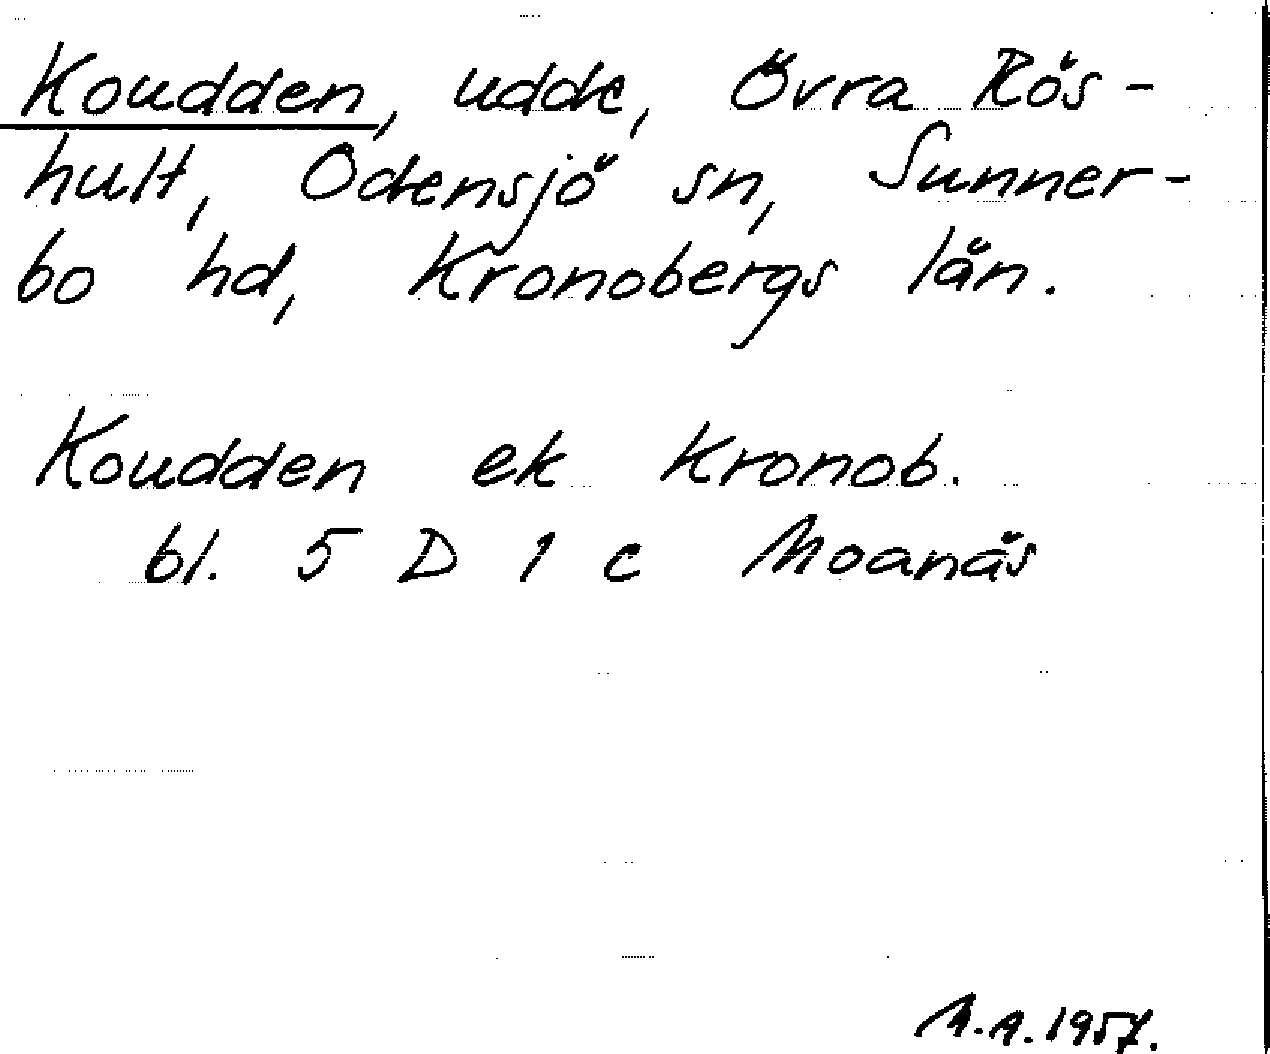 Koudden, udde, Övra Rös-
hult, Odensjö sn, Sunner-
bo hd, Kronobergs län.
Koudden ek Kronob.
bl. 5 D 1 c Moanäs
M.A. 1957.